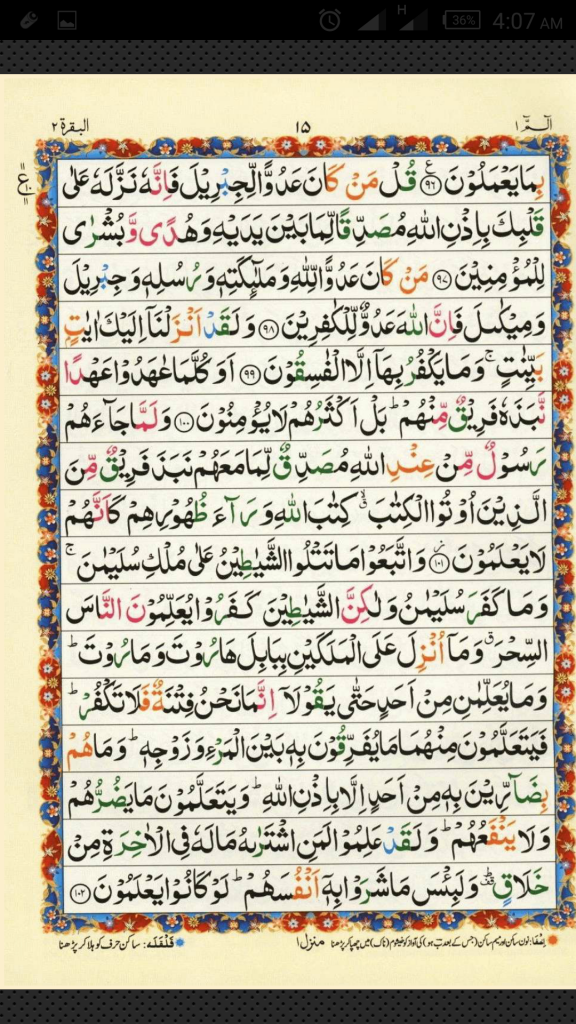 H 36% 4:07 AM
الٓمّٓ ١ ١٥ البقرة ٢
بِمَا يَعْمَلُوْنَ ۝٩٦ قُلْ مَنْ كَانَ عَدُوًّا لِّجِبْرِيْلَ فَاِنَّهٗ نَزَّلَهٗ عَلٰى
ع ١١ ١٠ ١١
قَلْبِكَ بِاِذْنِ اللّٰهِ مُصَدِّقًا لِّمَا بَيْنَ يَدَيْهِ وَهُدًى وَّبُشْرٰى
لِلْمُؤْمِنِيْنَ ۝٩٧ مَنْ كَانَ عَدُوًّا لِّلّٰهِ وَمَلٰٓئِكَتِهٖ وَرُسُلِهٖ وَجِبْرِيْلَ
وَمِيْكٰىلَ فَاِنَّ اللّٰهَ عَدُوٌّ لِّلْكٰفِرِيْنَ ۝٩٨ وَلَقَدْ اَنْزَلْنَآ اِلَيْكَ اٰيٰتٍۭ
بَيِّنٰتٍ ۚ وَمَا يَكْفُرُ بِهَآ اِلَّا الْفٰسِقُوْنَ ۝٩٩ اَوَكُلَّمَا عٰهَدُوْا عَهْدًا
نَّبَذَهٗ فَرِيْقٌ مِّنْهُمْ ؕ بَلْ اَكْثَرُهُمْ لَا يُؤْمِنُوْنَ ۝١٠٠ وَلَمَّا جَآءَهُمْ
رَسُوْلٌ مِّنْ عِنْدِ اللّٰهِ مُصَدِّقٌ لِّمَا مَعَهُمْ نَبَذَ فَرِيْقٌ مِّنَ
الَّذِيْنَ اُوْتُوا الْكِتٰبَ ۙ كِتٰبَ اللّٰهِ وَرَآءَ ظُهُوْرِهِمْ كَاَنَّهُمْ
لَا يَعْلَمُوْنَ ۝١٠١ وَاتَّبَعُوْا مَا تَتْلُوا الشَّيٰطِيْنُ عَلٰى مُلْكِ سُلَيْمٰنَ ۚ
وَمَا كَفَرَ سُلَيْمٰنُ وَلٰكِنَّ الشَّيٰطِيْنَ كَفَرُوْا يُعَلِّمُوْنَ النَّاسَ
السِّحْرَ ۗ وَمَآ اُنْزِلَ عَلَى الْمَلَكَيْنِ بِبَابِلَ هَارُوْتَ وَمَارُوْتَ ؕ
وَمَا يُعَلِّمٰنِ مِنْ اَحَدٍ حَتّٰى يَقُوْلَآ اِنَّمَا نَحْنُ فِتْنَةٌ فَلَا تَكْفُرْ ؕ
فَيَتَعَلَّمُوْنَ مِنْهُمَا مَا يُفَرِّقُوْنَ بِهٖ بَيْنَ الْمَرْءِ وَزَوْجِهٖ ؕ وَمَا هُمْ
بِضَآرِّيْنَ بِهٖ مِنْ اَحَدٍ اِلَّا بِاِذْنِ اللّٰهِ ؕ وَيَتَعَلَّمُوْنَ مَا يَضُرُّهُمْ
وَلَا يَنْفَعُهُمْ ؕ وَلَقَدْ عَلِمُوْا لَمَنِ اشْتَرٰىهُ مَا لَهٗ فِى الْاٰخِرَةِ مِنْ
خَلَاقٍ ۗ وَلَبِئْسَ مَا شَرَوْا بِهٖٓ اَنْفُسَهُمْ ؕ لَوْ كَانُوْا يَعْلَمُوْنَ ۝١٠٢
اِخفَا: نون ساکن اور میم ساکن (جس کے بعد ب ہو) کی آواز کو خیشوم (ناک) میں چھپا کر پڑھنا منزل ١ قَلْقَلَه: ساکن حرف کو ہلا کر پڑھنا